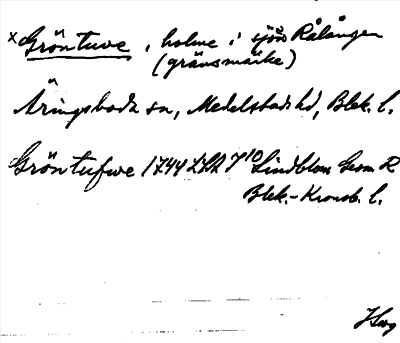 x Gröntuve, holme i sjön Rålången
(gränsmärke)
Äringsboda sn, Medelstads hd, Blek. l.
Gröntufwe 1744 LSA 7 10 Lindblom Geom R
Blek.-Kronob. l.